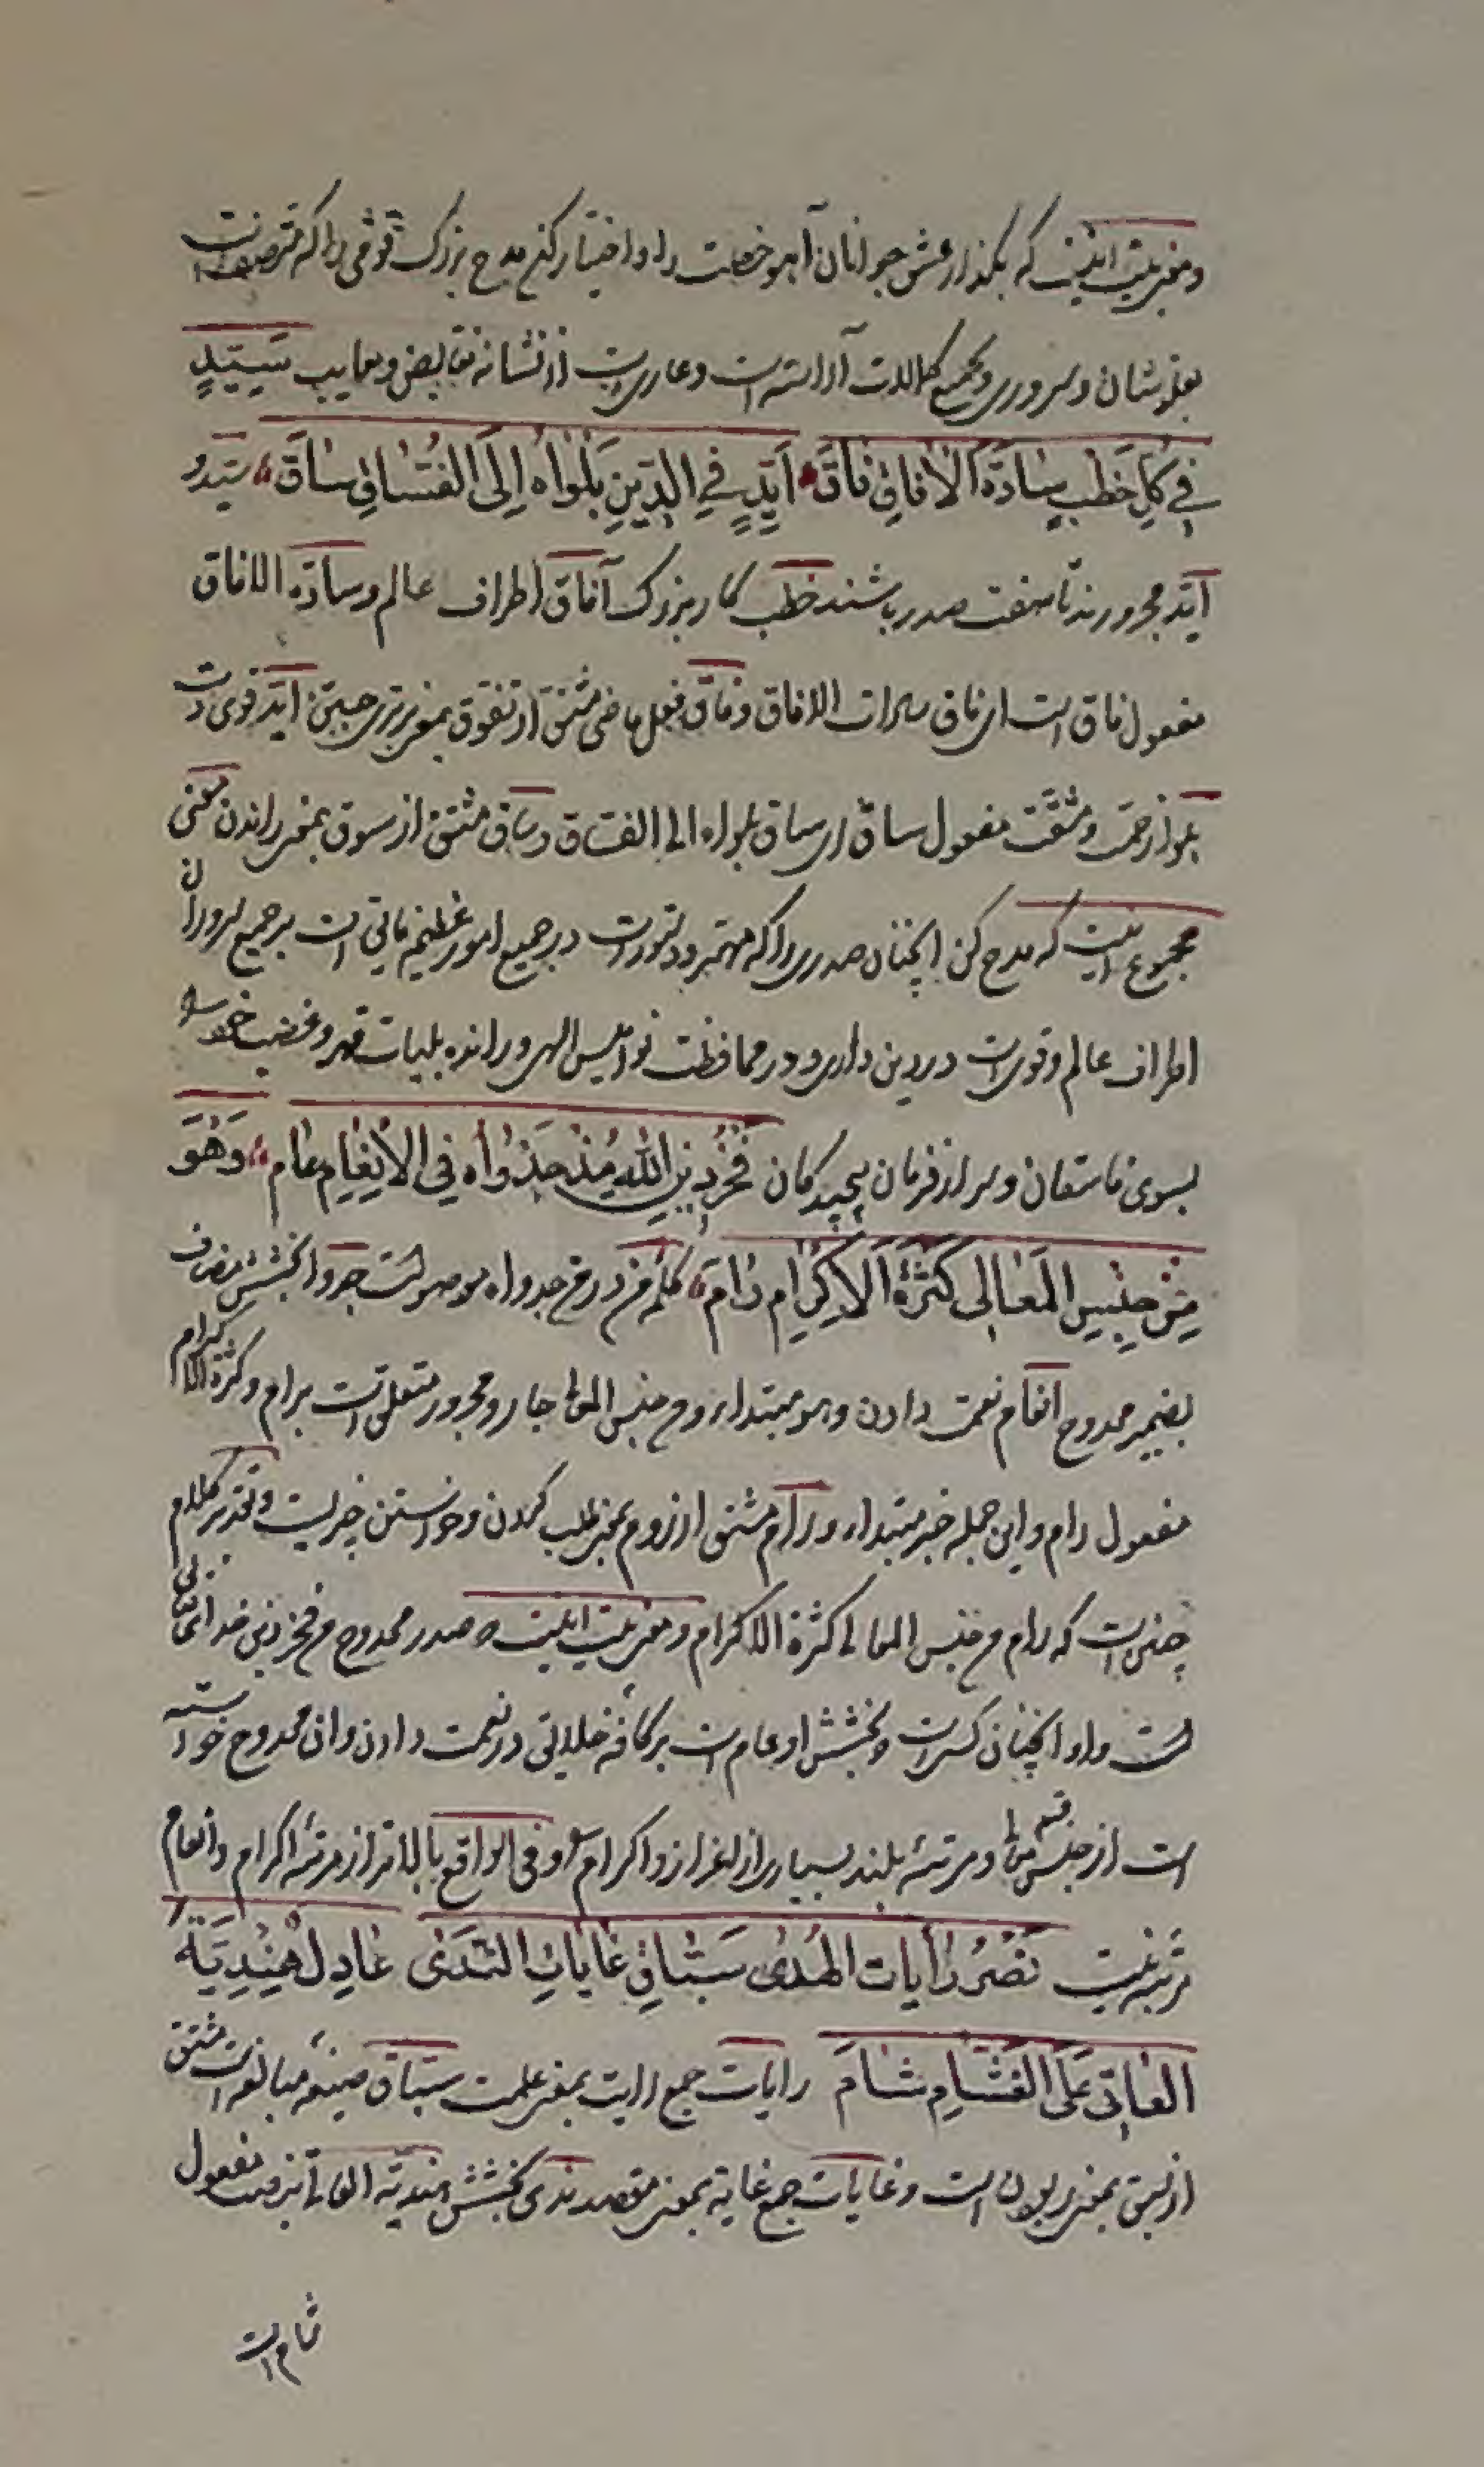 ومعنی بیت اینست که بگذار عشق جوانان آهو خصلت را و اختیار کن مدح بزرک قومی را که متصفست
بعلو شان و سروری و بجمیع کمالات آراسته است و عاریست از نشانه نقایص و معایب سَیِّدٍ
فی کلِّ خَطْبٍ سادَةَ الآفاقِ فاقَ اَیِّدٍ فی الدِّینِ بَلْواه اِلَی الفُسّاقِ ساقَ سید و
اید مجرورند تا صفت صدر باشند خطب کار بزرک آفاق اطراف عالم و سادة الافاق
مفعول فاق است ای فاق سادات الافاق و فاق فعل ماضی مشتق از تفوق بمعنی برتری جستن اید قوی است
بلوا زحمت و مشقت مفعول ساق ای ساق بلواه الی الفساق و ساق مشتق از سوق بمعنی راندن معنی
مجموع اینست که مدح کن آنچنان صدری را که مهتر و دستورست در جمیع امور عظیم فایق است بر جمیع سروران
اطراف عالم و قویست در دین داری و در محافظت نوامیس الهی و رانده بلیات قهر و غضب خود را
بسوی فاسقان و سر از فرمان پیچیدکان فَخْرُ دِینِ اللهِ مَنْ جَدْواه فی الاِنْعامِ عام وَهُوَ
مِنْ جِنْسِ المَعالی کَثْرَةَ الاِکْرامِ رامَ کلمه من در من جدواه موصولست جدوا بخشش مضاف
بضمیر ممدوح انعام نعمت دادن و هو مبتدا و من جنس المعالی جار و مجرور متعلق است برام و کثرة الاکرام
مفعول رام و این جمله خبر مبتدا و رام مشتق از روم بمعنی طلب کردن و خواستن چیزیست و تقدیر کلام
چنین است که رام من جنس المعالی کثرة الاکرام و معنی بیت اینست که صدر ممدوح من فخر دین خدای تعالی
است و او آنچنان کسیست که بخشش او عام است بر کافه خلایق در نعمت دادن و ان ممدوح خواسته
است از جنس معالی و مرتبهٔ بلند بسیاری از اعزاز و اکرام را و فی الواقع بالاتر از مرتبهٔ اکرام و انعام
مرتبه نیست نَصْرُ رایات الهُدی سَبّاقِ غایاتِ النَّدی عادِل هِنْدِیَّةً
العاتی عَلَی الغَشّامِ شامَ رایات جمع رایت بمعنی علمست سباق صیغهٔ مبالغه است مشتق
از سبق بمعنی ربودن است و غایات جمع غایة بمعنی مقصد ندی بخشش هندیة العاتی مفعول
شام است